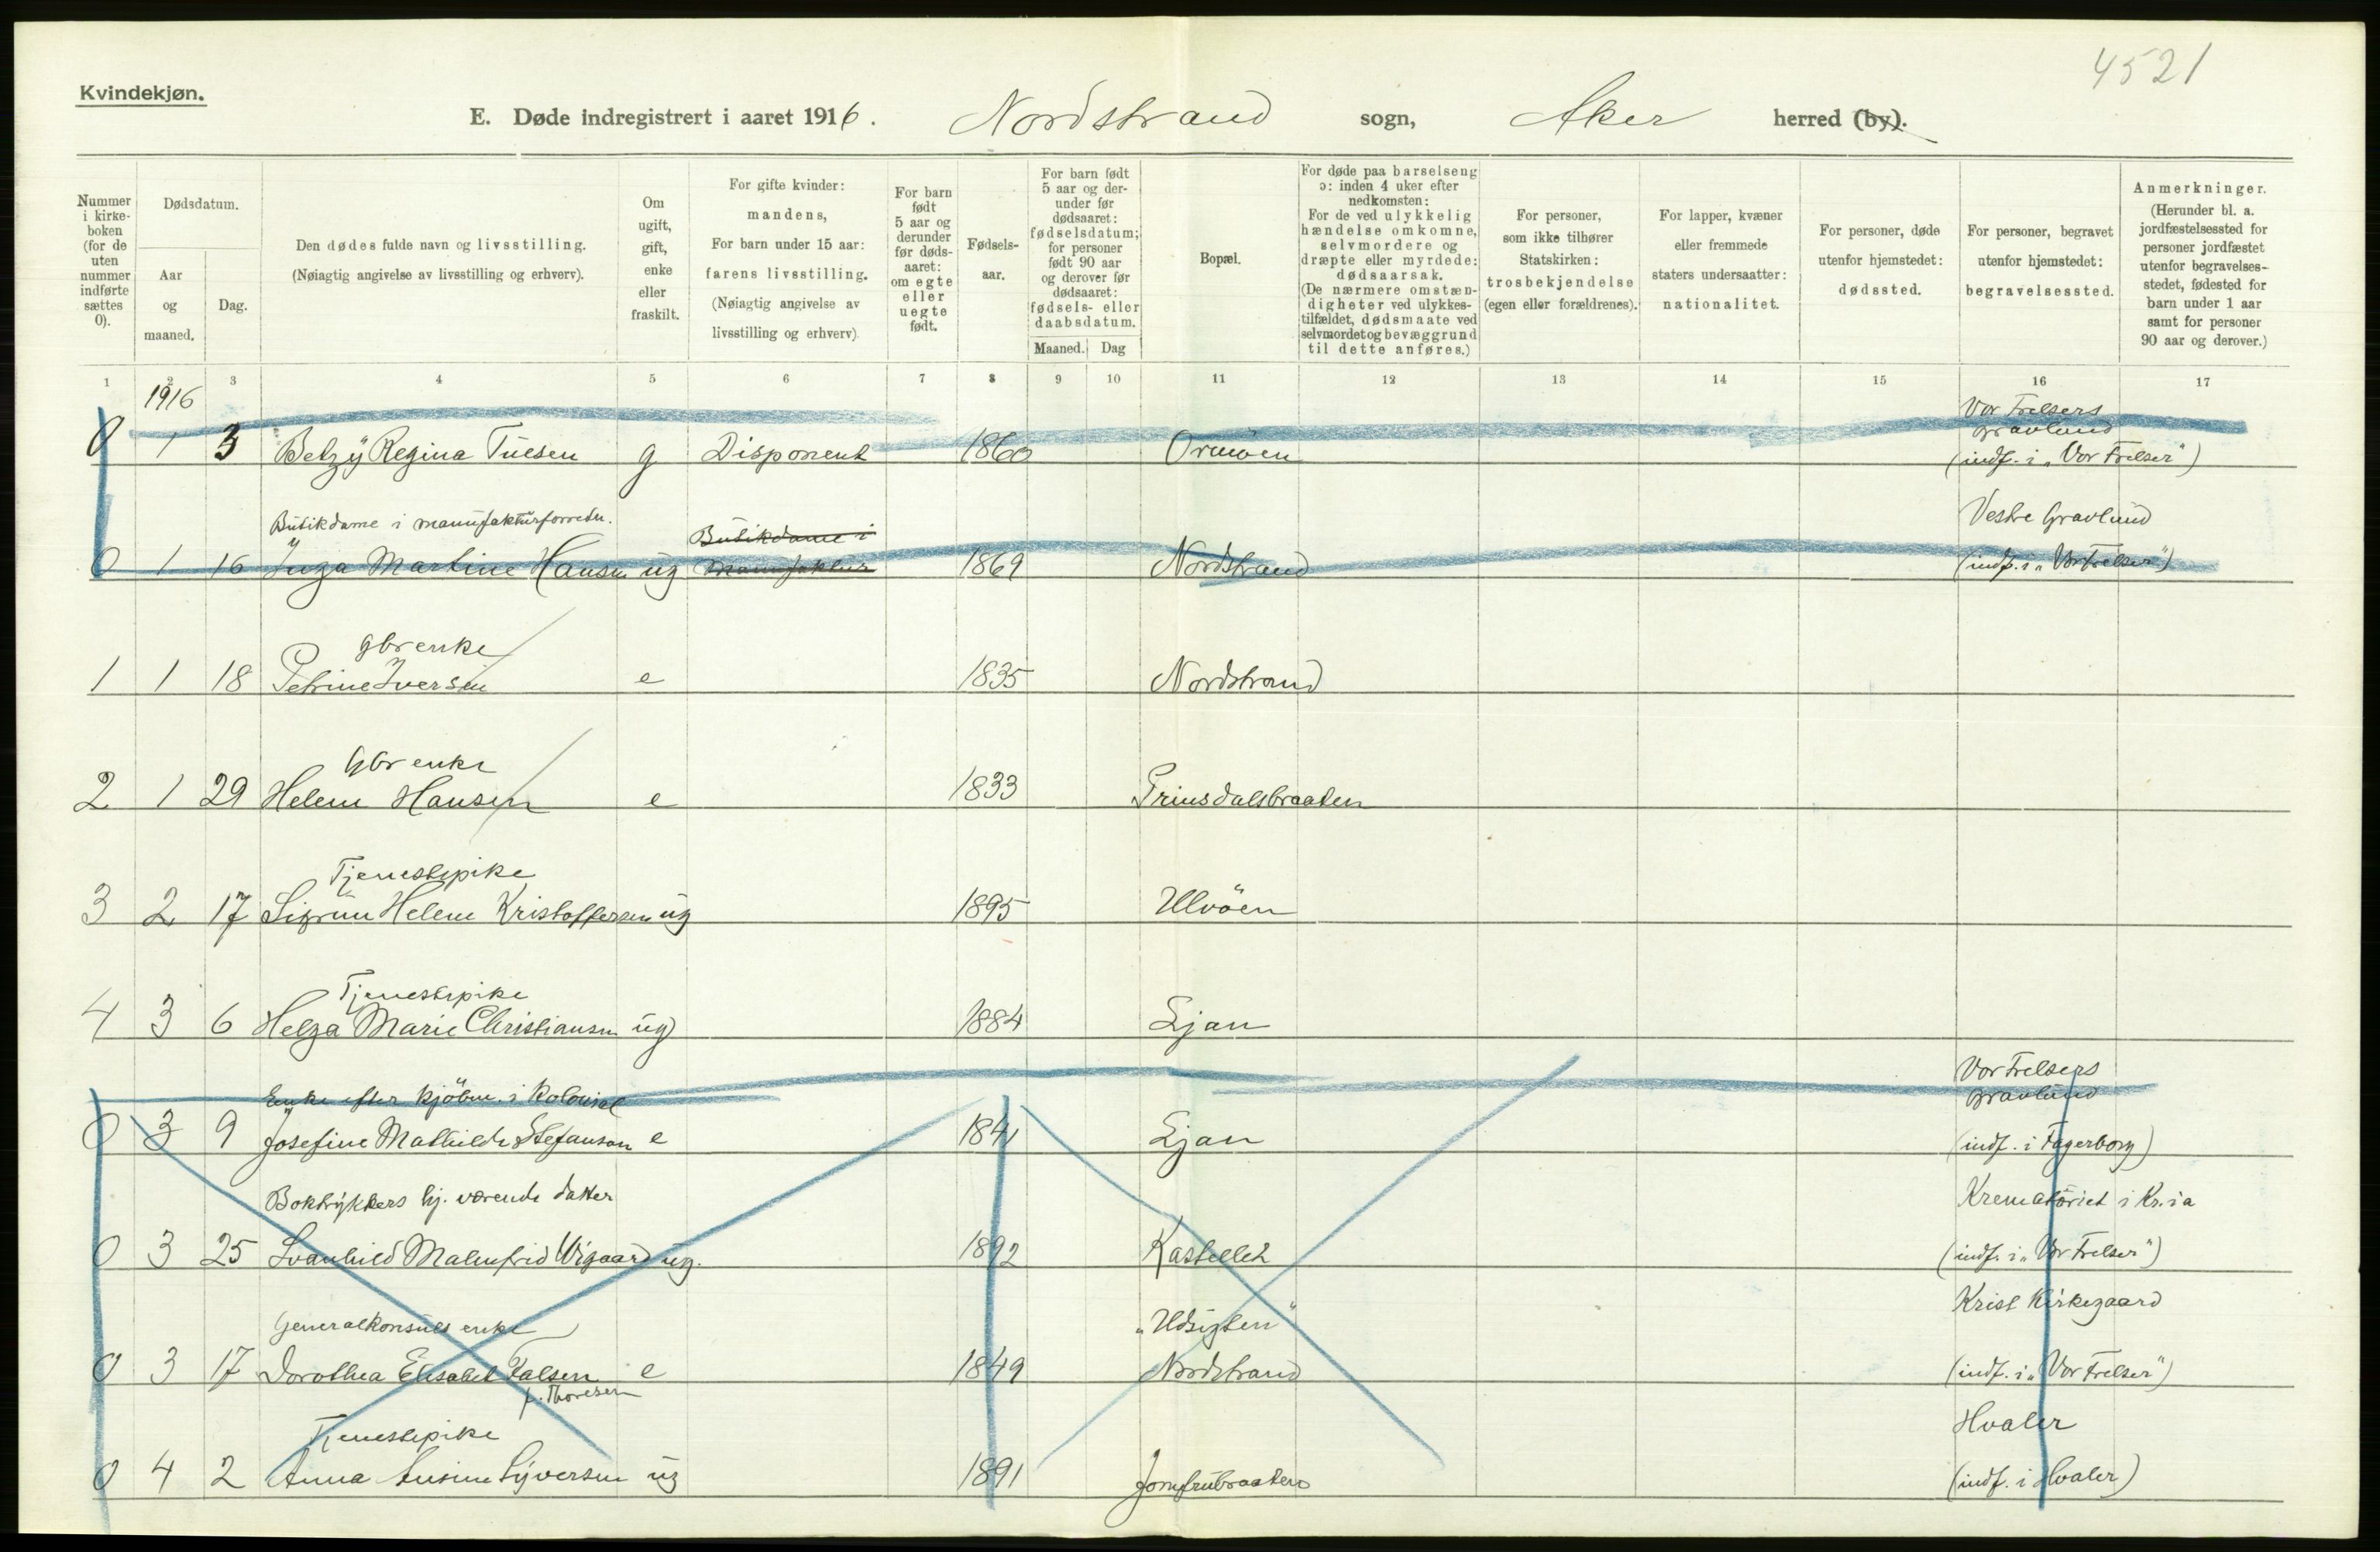 4521
Kvindekjøn.
E. Døde indregistrert i aaret 1916. Nordstrand sogn, Aker herred (by).
Nummer i kirkeboken (for de uten nummer indførte sættes 0).
Dødsdatum.
Aar og maaned.
Dag.
Den dødes fulde navn og livsstilling.
(Nøiagtig angivelse av livsstilling og erhverv).
Om ugift, gift, enke eller fraskilt.
For gifte kvinder: mandens, For barn under 15 aar: farens livsstilling.
(Nøiagtig angivelse av livsstilling og erhverv)
For barn født 5 aar og derunder før dødsaaret: om egte eller uegte født.
Fødselsaar.
For barn født 5 aar og derunder før dødsaaret: fødselsdatum; for personer født 90 aar og derover før dødsaaret: fødsels- eller daabsdatum.
Maaned. Dag
Bopæl.
For døde paa barselseng ɔ: inden 4 uker efter nedkomsten:
For de ved ulykkelig hændelse omkomne, selvmordere og dræpte eller myrdede: dødsaarsak.
(De nærmere omstændigheter ved ulykkestilfældet, dødsmaate ved selvmordet og bevæggrund til dette anføres.)
For personer, som ikke tilhører Statskirken: trosbekjendelse (egen eller forældrenes).
For lapper, kvæner eller fremmede staters undersaatter: nationalitet.
For personer, døde utenfor hjemstedet: dødssted.
For personer, begravet utenfor hjemstedet: begravelsessted.
Anmerkninger.
(Herunder bl. a. jordfæstelsessted for personer jordfæstet utenfor begravelsesstedet, fødested for barn under 1 aar samt for personer 90 aar og derover.)
1 2 3 4 5 6 7 8 9 10 11 12 13 14 15 16 17
1916
Vor Frelsers
gravlund
0 1 3 Betzy Regina Tuesen g Disponent 1860 Ormøen (indf. i "Vor Frelser")
Butikdame i manufakturforretn. Butikdame i Vestre Gravlund
0 1 16 Inga Martine Hansen ug manufaktur 1869 Nordstrand (indf. i "Vor Frelser")
gbrenke
1 1 18 Petrine Iversen e 1835 Nordstrand
Gbrenke
2 1 29 Helene Hansen e 1833 Prinsdalsbraaten
Tjenestepike
3 2 17 Sigrun Helene Kristoffersen ug 1895 Ulvöen
Tjenestepike
4 3 6 Helga Marie Christiansen ug 1884 Ljan
Enke efter kjöbm. i Kolonial Vor Frelsers
Gravlund
0 3 9 Josefine Mathilde Stefanson e 1841 Ljan (indf. i Fagerborg)
Boktrykkers hj. værende datter Krematoriet i Kr.ia
0 3 25 Svanhild Malmfrid Wigaard ug. 1892 Kastellet (indf. i "Vor Frelser")
Generalkonsuls enke "Udsigten" Krist Kirkegaard
0 3 17 Dorothea Elisabet Falsen e 1849 Nordstrand (indf. i "Vor Frelser")
f. Thoresen
Tjenestepike Hvaler
0 4 2 Anna Syversen ug 1891 Jomfrubraaten (indf. i Hvaler)